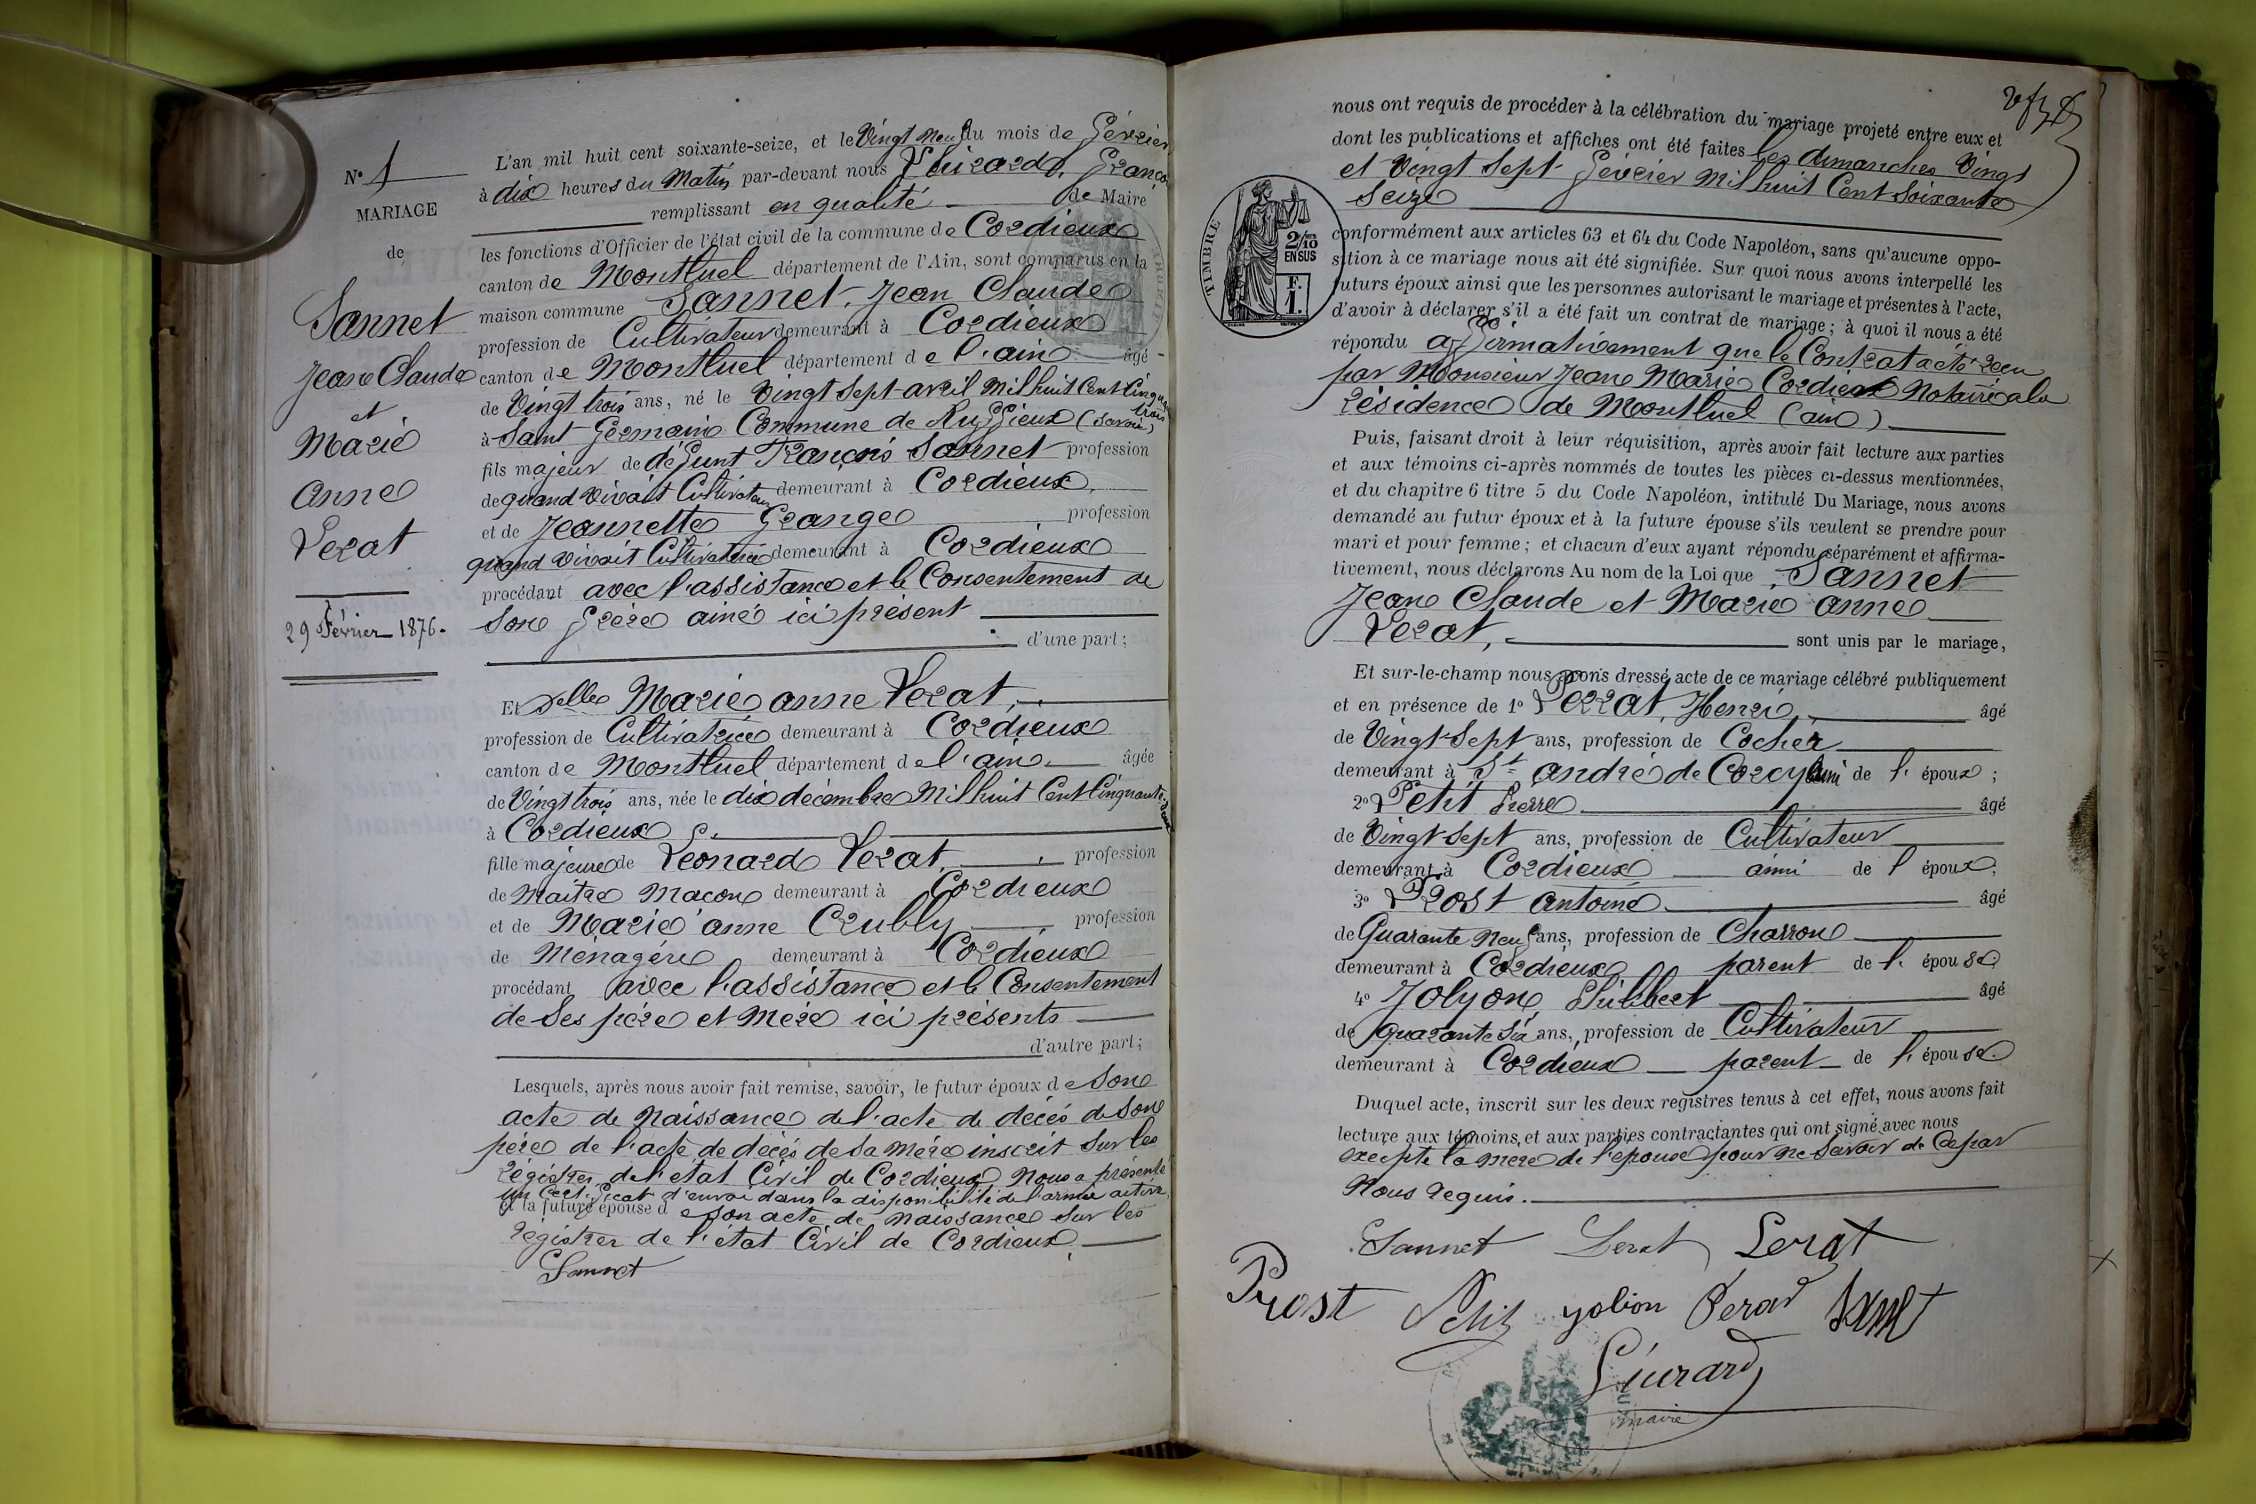 N° 1
MARIAGE
de
Sannet
Jean Claude
et
Marie
anne
Lerat
29 Février 1876.
L'an mil huit cent soixante-seize, et le Vingt Neuf du mois de Février
à dix heures du Matin par-devant nous
remplissant en qualité de Maire
les fonctions d'Officier de l'état civil de la commune de Cordieux
canton de Montluel département de l'Ain, sont comparus en la
maison commune Sannet, Jean Claude
profession de Cultivateur demeurant à Cordieux
canton de Montluel département de l'ain âgé
de Vingt trois ans, né le Vingt Sept avril Mil huit Cent Cinquante trois
à Saint Germain Commune de Ruffieux (Savoie)
fils majeur de défunt François Sannet profession
de quand vivait Cultivateur demeurant à Cordieux,
et de Jeannette Grange profession
quand vivait Cultivatrice demeurant à Cordieux
procédant avec l'assistance et le Consentement de
Son frère ainé ici présent
d'une part;
Et Delle Marie anne Lerat,
profession de Cultivatrice demeurant à Cordieux
canton de Montluel département de l'ain âgée
de Vingt trois ans, née le dix décembre Mil huit Cent Cinquante-deux
à Cordieux
fille majeure de Léonard Lerat, profession
de Maître Maçon demeurant à Cordieux
et de Marie anne Crubly profession
de Ménagère demeurant à Cordieux
procédant avec l'assistance et le Consentement
de Ses père et Mère ici présents
d'autre part;
Lesquels, après nous avoir fait remise, savoir, le futur époux de Son
acte de Naissance de l'acte de décés de Son
père de l'acte de décés de Sa Mère inscrit Sur les
régistres de l'état Civil de Cordieux Nous a présenté
un Certificat d'envoi dans la disponibilité de l'armée active,
et la future épouse de Son acte de Naissance Sur les
régistres de l'état Civil de Cordieux
Sannet
nous ont requis de procéder à la célébration du mariage projeté entre eux et
dont les publications et affiches ont été faites les dimanches Vingt
et Vingt Sept Février Mil huit Cent Soixante
Seize
TIMBRE
2/10
EN SUS
F.
1.
conformément aux articles 63 et 64 du Code Napoléon, sans qu'aucune oppo-
sition à ce mariage nous ait été signifiée. Sur quoi nous avons interpellé les
futurs époux ainsi que les personnes autorisant le mariage et présentes à l'acte,
d'avoir à déclarer s'il a été fait un contrat de mariage; à quoi il nous a été
répondu affirmativement que le Contrat a été reçu
par Monsieur Jean Marie Cordieux Notaire a la
résidence de Montluel (ain)
Puis, faisant droit à leur réquisition, après avoir fait lecture aux parties
et aux témoins ci-après nommés de toutes les pièces ci-dessus mentionnées,
et du chapitre 6 titre 5 du Code Napoléon, intitulé Du Mariage, nous avons
demandé au futur époux et à la future épouse s'ils veulent se prendre pour
mari et pour femme; et chacun d'eux ayant répondu séparément et affirma-
tivement, nous déclarons Au nom de la Loi que Sannet
Jean Claude et Marie anne
Lerat, sont unis par le mariage,
Et sur-le-champ nous avons dressé acte de ce mariage célébré publiquement
et en présence de 1° Perrat, Henri, âgé
de Vingt Sept ans, profession de Cocher
demeurant à St andré de Corcy ami de l' époux;
2° Petit Pierre âgé
de Vingt Sept ans, profession de Cultivateur
demeurant à Cordieux ami de l' époux;
3° Prost antoine âgé
de Quarante Neuf ans, profession de Charron
demeurant à Cordieux parent de l' épouse
4° Jolyon, Philibert âgé
de quarante Six ans, profession de Cultivateur
demeurant à Cordieux parent de l' épouse.
Duquel acte, inscrit sur les deux registres tenus à cet effet, nous avons fait
lecture aux témoins, et aux parties contractantes qui ont signé avec nous
excepté la mère de l'épouse pour ne Savoir de Ce par
Nous requis.
Sannet Lerat Lerat
Prost Petit yolion Perad
maire